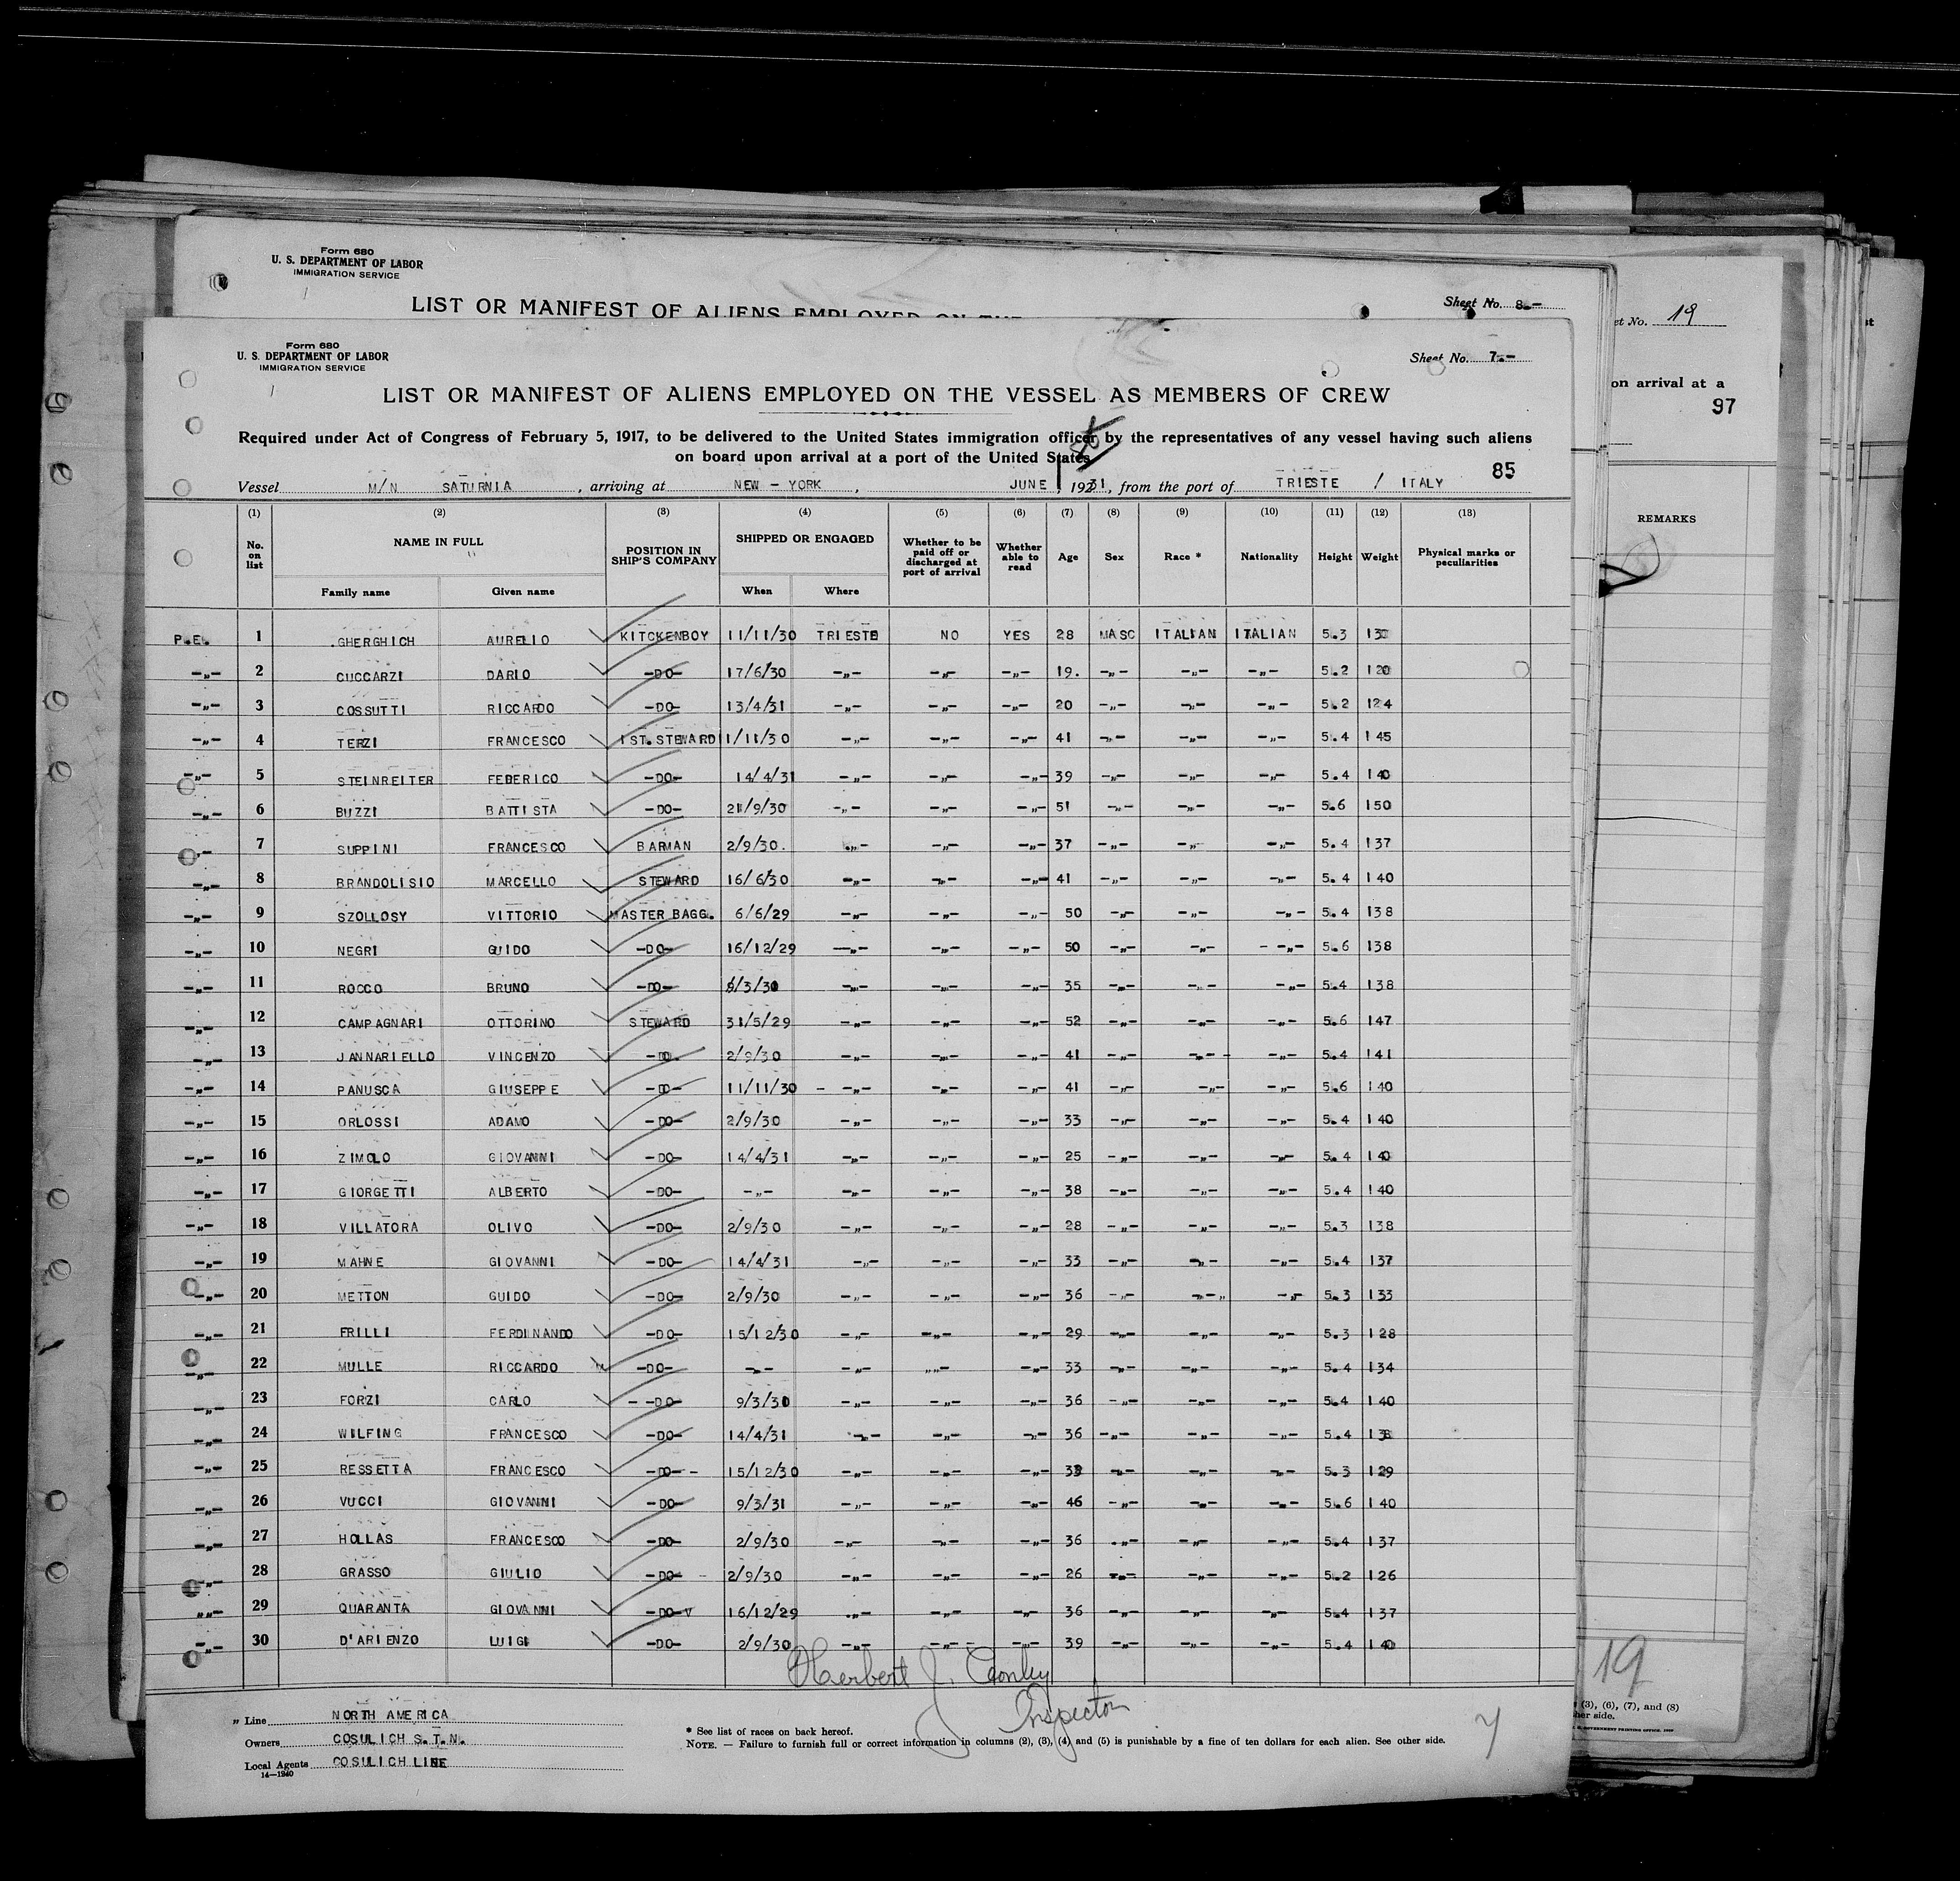 Form 680
U. S. DEPARTMENT OF LABOR
IMMIGRATION SERVICE
Sheet No. 8.-
LIST OR MANIFEST OF ALIENS EMPLOYED ON THE
19
on arrival at a
97
REMARKS
Form 680
U. S. DEPARTMENT OF LABOR
IMMIGRATION SERVICE
Sheet No. 7.-
LIST OR MANIFEST OF ALIENS EMPLOYED ON THE VESSEL AS MEMBERS OF CREW
Required under Act of Congress of February 5, 1917, to be delivered to the United States immigration officer by the representatives of any vessel having such aliens
on board upon arrival at a port of the United States
85
Vessel M/N SATURNIA, arriving at NEW - YORK, JUNE, 1931, from the port of TRIESTE / ITALY
(1) (2) (3) (4) (5) (6) (7) (8) (9) (10) (11) (12) (13)
No. on list NAME IN FULL POSITION IN SHIP'S COMPANY SHIPPED OR ENGAGED Whether to be paid off or discharged at port of arrival Whether able to read Age Sex Race * Nationality Height Weight Physical marks or peculiarities
Family name Given name When Where
P.E. 1 GHERGHICH AURELIO KITCKENBOY 11/11/30 TRIESTE NO YES 28 MASC ITALIAN ITALIAN 5.3
-„- 2 CUCCARZI DARIO -DO- 17/6/30 -„- -„- -„- 19. -„- -„- -„- 5.2 120
-„- 3 COSSUTTI RICCARDO -DO- 13/4/31 -„- -„- -„- 20 -„- -„- -„- 5.2 124
-„- 4 TERZI FRANCESCO 1ST.STEWARD 11/11/30 -„- -„- -„- 41 -„- -„- -„- 5.4 145
-„- 5 STEINREITER FEDERICO -DO- 14/4/31 -„- -„- -„- 39 -„- -„- -„- 5.4 140
-„- 6 BUZZI BATTISTA -DO- 21/9/30 -„- -„- -„- 51 -„- -„- -„- 5.6 150
-„- 7 SUPPINI FRANCESCO BARMAN 2/9/30. -„- -„- -„- 37 -„- -„- -„- 5.4 137
-„- 8 BRANDOLISIO MARCELLO STEWARD 16/6/30 -„- -„- -„- 41 -„- -„- -„- 5.4 140
-„- 9 SZOLLOSY VITTORIO MASTER BAGG. 6/6/29 -„- -„- -„- 50 -„- -„- -„- 5.4 138
-„- 10 NEGRI GUIDO -DO- 16/12/29 -„- -„- -„- 50 -„- -„- -„- 5.6 138
-„- 11 ROCCO BRUNO -DO- -„- -„- -„- 35 -„- -„- -„- 5.4 138
-„- 12 CAMPAGNARI OTTORINO STEWARD 31/5/29 -„- -„- -„- 52 -„- -„- -„- 5.6 147
-„- 13 JANNARIELLO VINCENZO -DO. 2/9/30 -„- -„- -„- 41 -„- -„- -„- 5.4 141
-„- 14 PANUSCA GIUSEPPE -DO- 11/11/30 - -„- -„- -„- 41 -„- -„- -„- 5.6 140
-„- 15 ORLOSSI ADAMO -DO- 2/9/30 -„- -„- -„- 33 -„- -„- -„- 5.4 140
-„- 16 ZIMOLO GIOVANNI -DO- 14/4/31 -„- -„- -„- 25 -„- -„- -„- 5.4 140
-„- 17 GIORGETTI ALBERTO -DO- -„- -„- -„- -„- 38 -„- -„- -„- 5.4 140
-„- 18 VILLATORA OLIVO -DO- 2/9/30 -„- -„- -„- 28 -„- -„- -„- 5.3 138
-„- 19 MAHNE GIOVANNI -DO- 14/4/31 -„- -„- -„- 33 -„- -„- -„- 5.4 137
-„- 20 METTON GUIDO -DO- 2/9/30 -„- -„- -„- 36 -„- -„- -„- 5.3 133
-„- 21 FRILLI FERDINANDO -DO- 15/12/30 -„- -„- -„- 29 -„- -„- -„- 5.3 128
-„- 22 MULLE RICCARDO -DO- -„- -„- -„- -„- 33 -„- -„- -„- 5.4 134
-„- 23 FORZI CARLO - -DO- 9/3/30 -„- -„- -„- 36 -„- -„- -„- 5.4 140
-„- 24 WILFING FRANCESCO -DO- 14/4/31 -„- -„- -„- 36 -„- -„- -„- 5.4
-„- 25 RESSETTA FRANCESCO -DO-- 15/12/30 -„- -„- -„- -„- -„- -„- 5.3 129
-„- 26 VUCCI GIOVANNI -DO- 9/3/31 -„- -„- -„- 46 -„- -„- -„- 5.6 140
-„- 27 HOLLAS FRANCESCO -DO- 2/9/30 -„- -„- -„- 36 -„- -„- -„- 5.4 137
-„- 28 GRASSO GIULIO -DO- - 2/9/30 -„- -„- -„- 26 -„- -„- -„- 5.2 126
„„- 29 QUARANTA GIOVANNI -DO-V 16/12/29 -„- -„- -„- 36 -„- -„- -„- 5.4 137
-„- 30 D'ARIENZO LUIGI -DO- 2/9/30 -„- -„- -„- 39 -„- -„- -„- 5.4 140
Herbert J. Conley
Inspector
„ Line NORTH AMERICA
Owners COSULICH S.T.N.
Local Agents COSULICH LINE
14—1940
* See list of races on back hereof.
NOTE. — Failure to furnish full or correct information in columns (2), (3), (4) and (5) is punishable by a fine of ten dollars for each alien. See other side.
7
19
(3), (6), (7), and (8)
her side.
GOVERNMENT PRINTING OFFICE